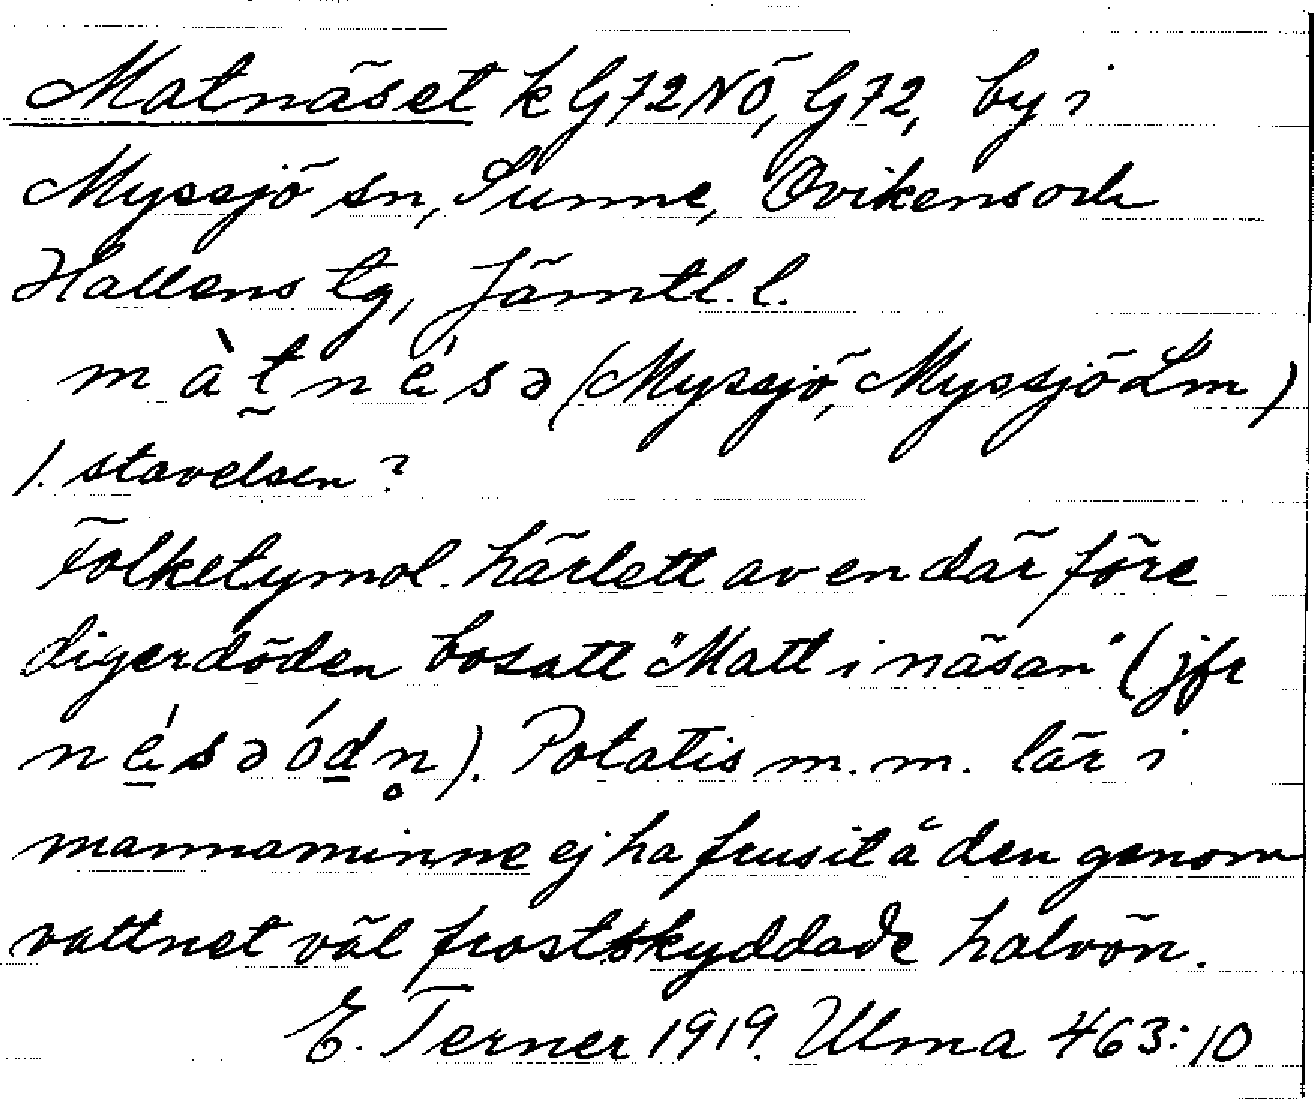 Matnäset k G72NÖ, G72, by i
Myssjö sn, Sunne, Ovikens och
Hallens tg, Jämtl. l.
màt̰nésə (Myssjö, Myssjö Lm)
1. stavelsen?
Folketymol. härlett av en där före
digerdöden bosatt "Matt i näsan" (jfr
né̱səóḏn̥). Potatis m.m. lär i
mannaminne ej ha frusit å den genom
vattnet väl frostskyddade halvön.
E. Terner 1919. Ulma 463:10